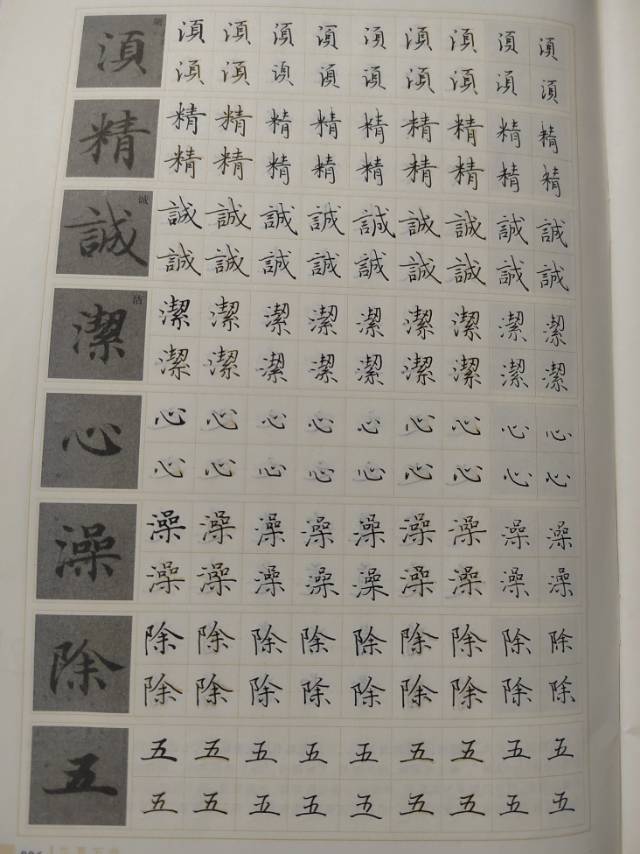 湏
湏湏湏湏湏湏湏湏湏
湏湏湏湏湏湏湏湏湏
精
精精精精精精精精精
精精精精精精精精精
誠 诚
誠誠誠誠誠誠誠誠誠
誠誠誠誠誠誠誠誠誠
潔 洁
潔潔潔潔潔潔潔潔潔
潔潔潔潔潔潔潔潔潔
心
心心心心心心心心心
心心心心心心心心心
澡
澡澡澡澡澡澡澡澡澡
澡澡澡澡澡澡澡澡澡
除
除除除除除除除除除
除除除除除除除除除
五
五五五五五五五五五
五五五五五五五五五